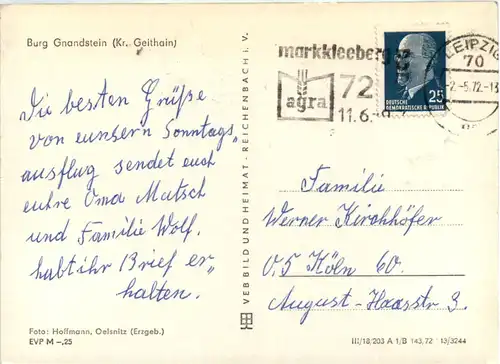 Burg Gnandstein (Kr. Geithain)
Die besten Grüße
von eunsern Sonntags„
ausflug sendet euch
euhre Oma Matsch
und Familie Wolf.
habt ihr Brief er„
halten.
Foto: Hoffmann, Oelsnitz (Erzgeb.)
EVP M -,25
VEB BILD UND HEIMAT · REICHENBACH i. V.
markkleeberg
agra
72
11.6.
LEIPZIG
70
-2.-5.72.-13
DEUTSCHE
DEMOKRATISCHE REPUBLIK
25
Familie
Werner Kirchhöfer
0,5 Köln 60.
August-Haasstr 3.
III/18/203 A 1/B 143,72 13/3244